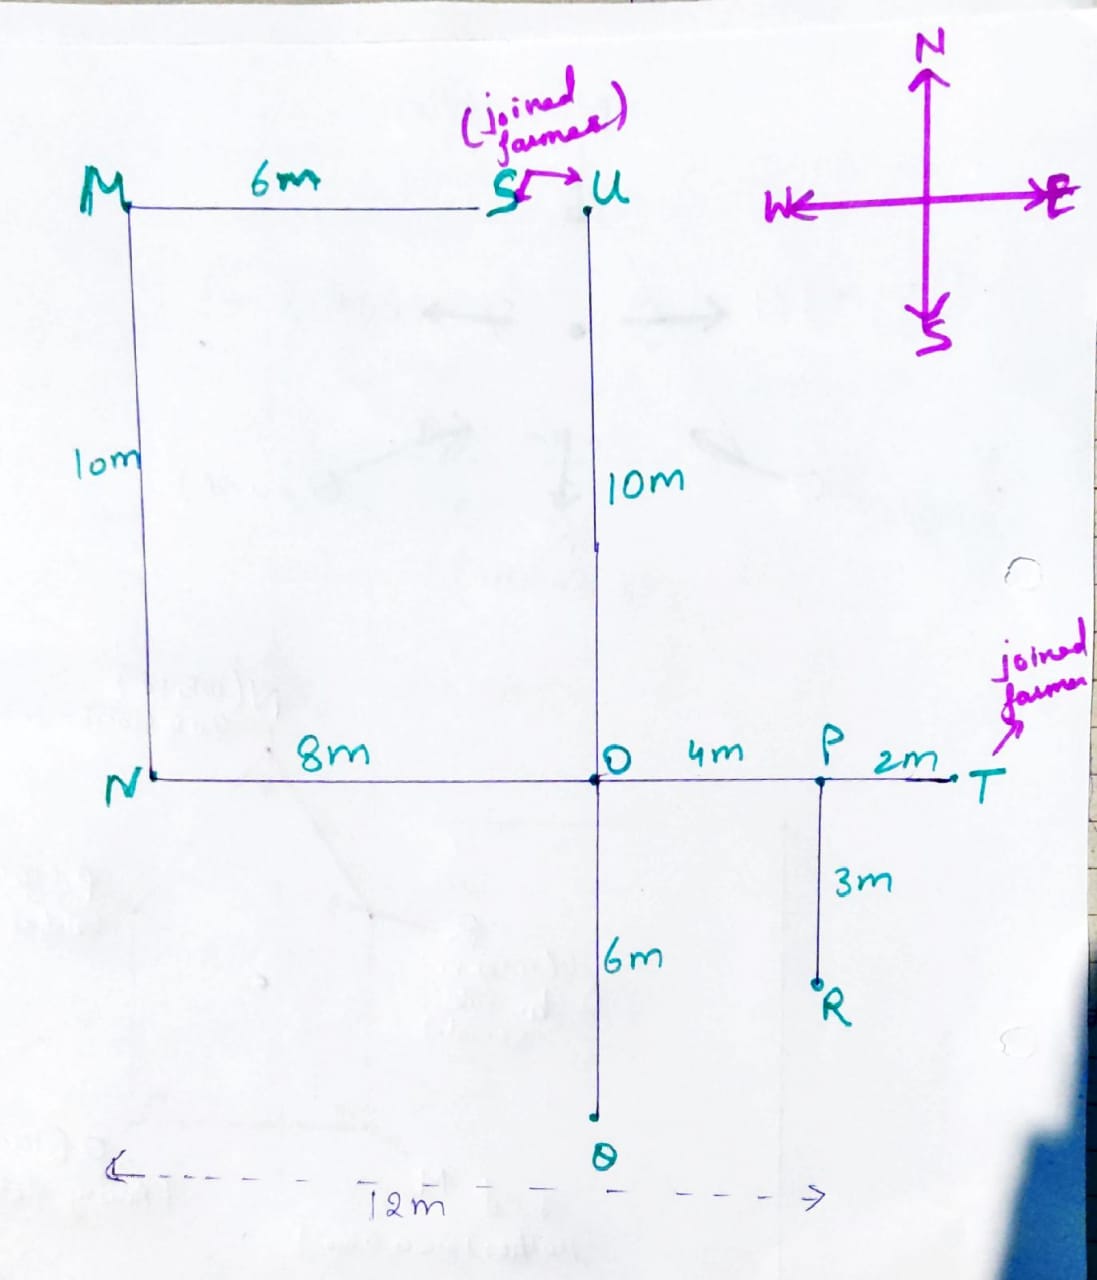 N
(joined
farmer)
M 6m S U
W E
S
10m
10m
joined
farmer
N 8m O 4m P 2m T
3m
6m
R
Q
12m